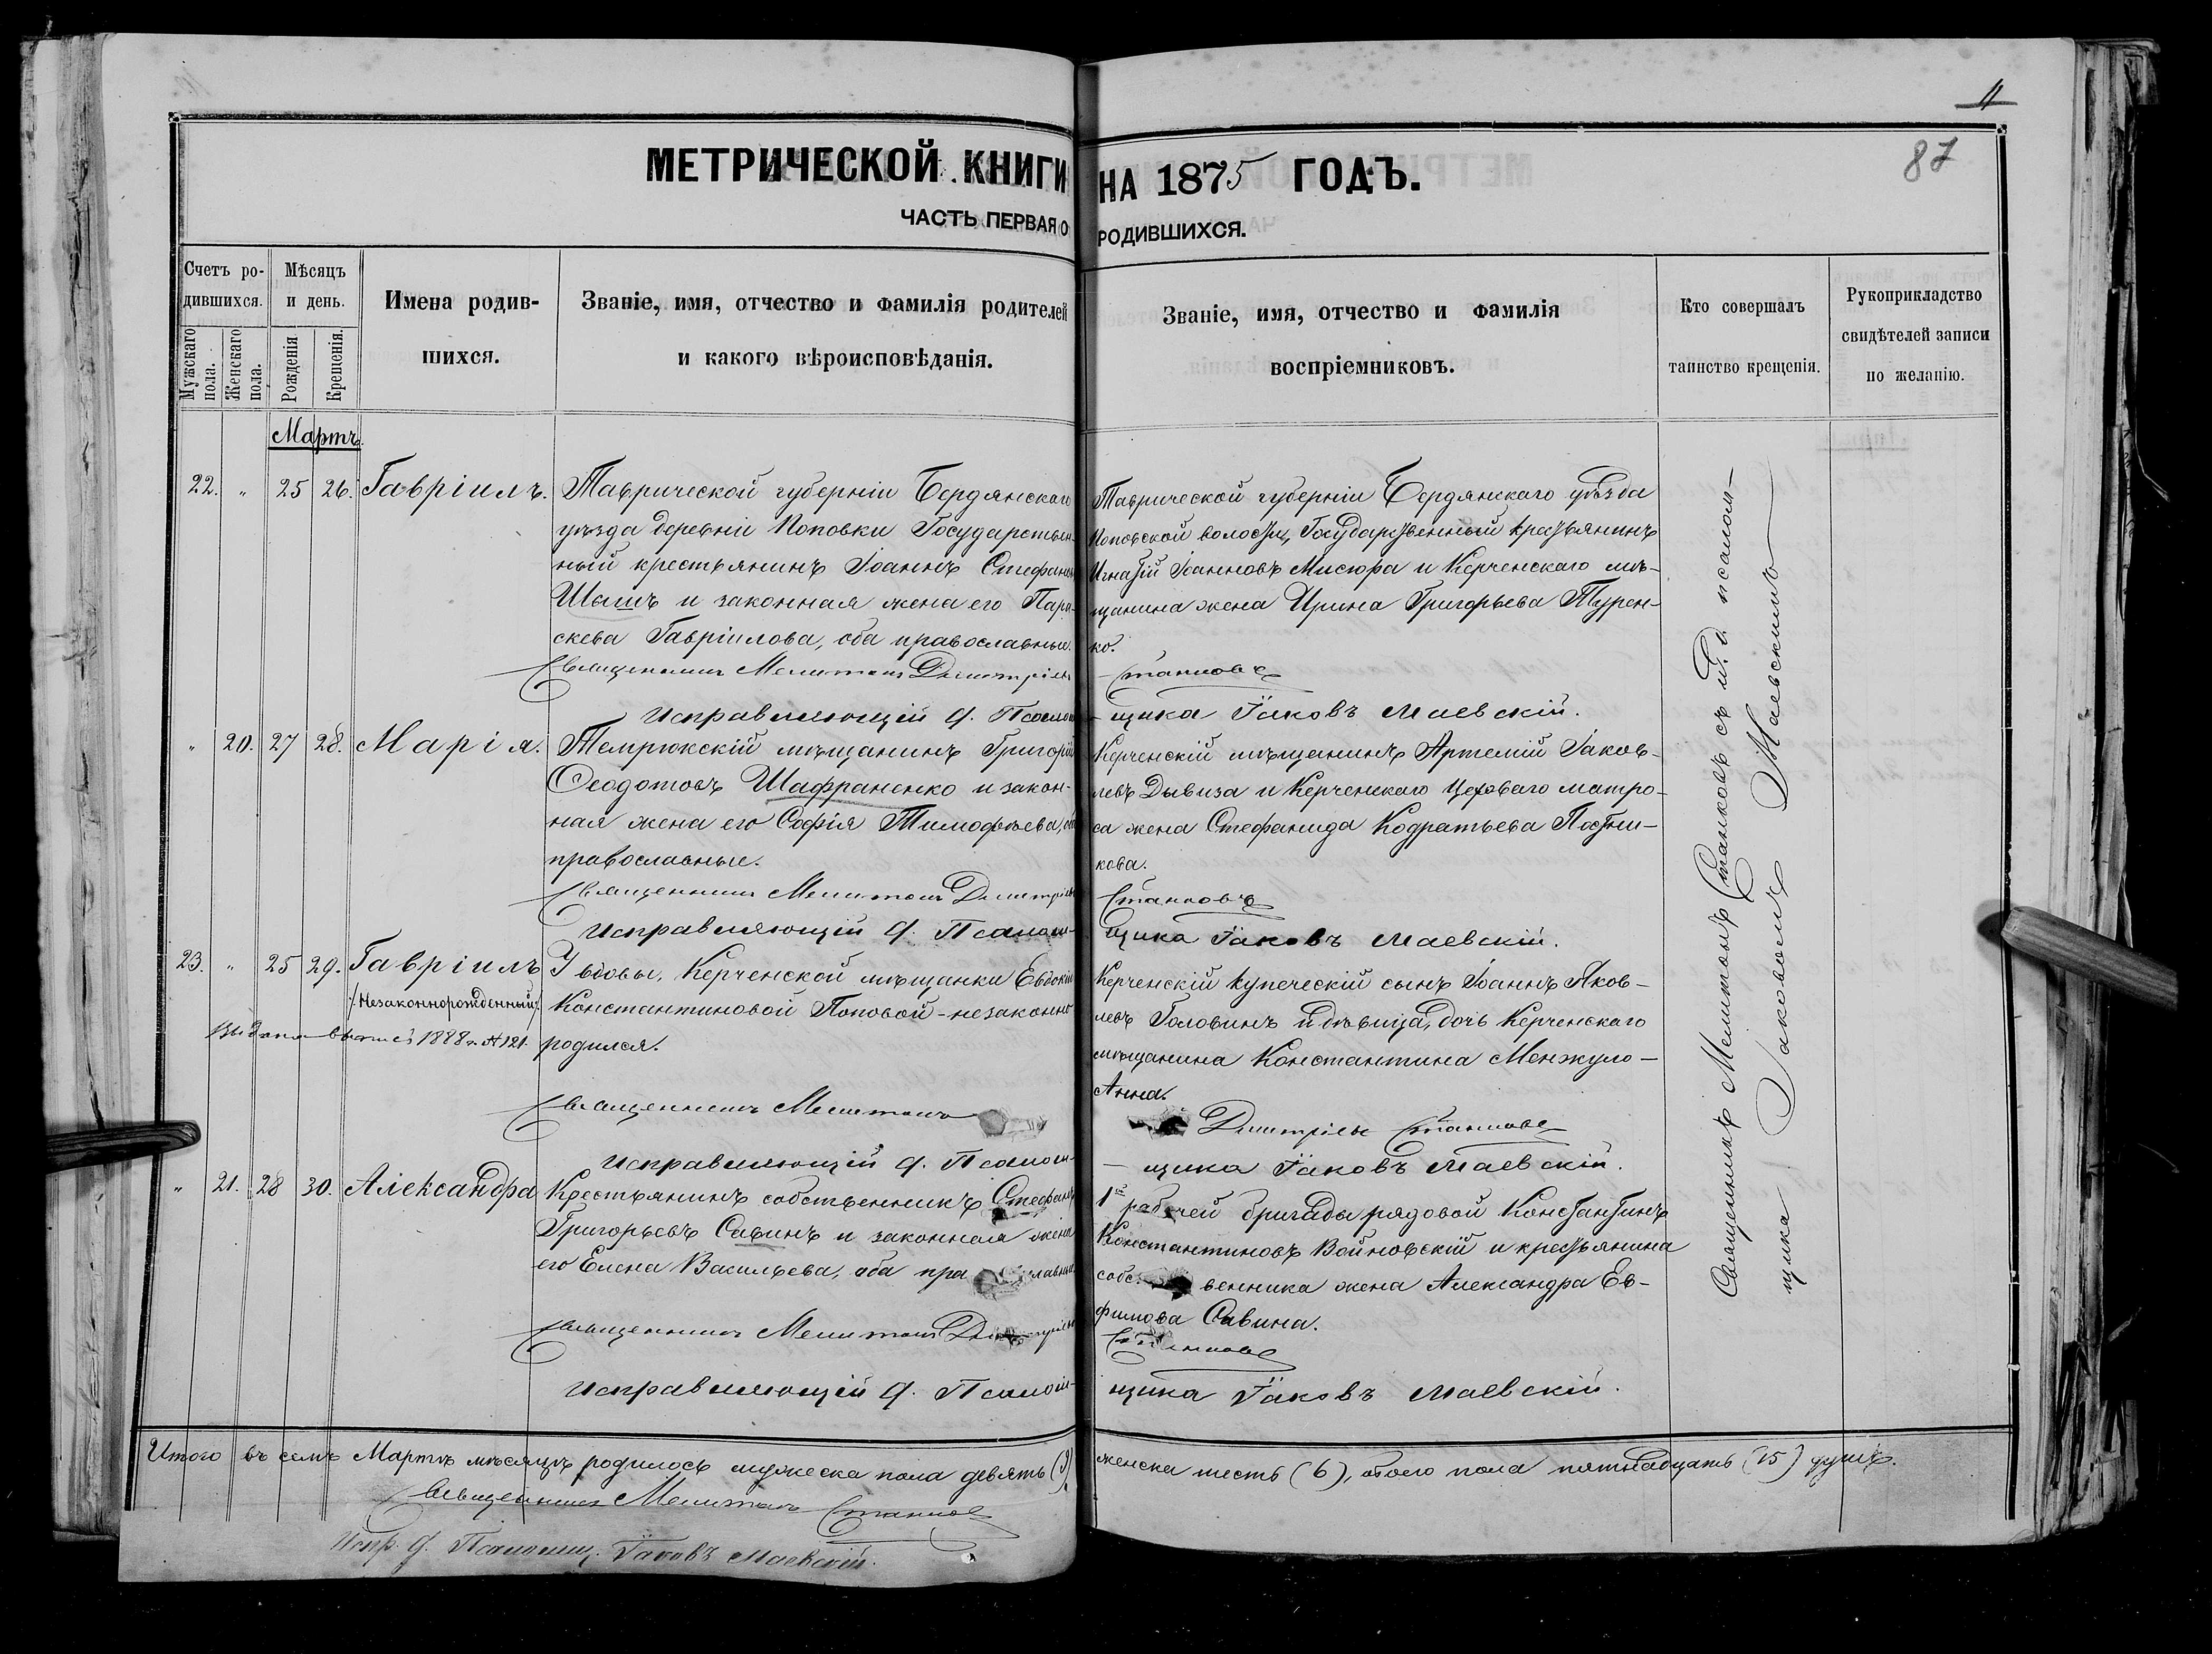 11
87
МЕТРИЧЕСКОЙ КНИГИ НА 1875 ГОДЪ.
ЧАСТЬ ПЕРВАЯ О РОДИВШИХСЯ.
Счетъ ро-
дившихся.
Мужскаго пола.
Женскаго пола.
Мѣсяцъ
и день.
Рожденія
Крещенія.
Имена родив-
шихся.
Званіе, имя, отчество и фамилія родителей
и какого вѣроисповѣданія.
Званіе, имя, отчество и фамилія
воспріемниковъ.
Кто совершалъ
таинство крещенія.
Рукоприкладство
свидѣтелей записи
по желанію.
Мартъ.
22. " 25 26. Гавріилъ.
Таврической губерніи Бердянскаго
уѣзда деревни Поповки Государствен-
ный крестьянинъ Іоаннъ Стефановъ
Шышъ и законная жена его Пара-
скева Гавріилова, оба православные.
Таврической губерніи Бердянскаго уѣзда
Поповской волости, Государственный крестьянинъ
Игнатій Іоанновъ Мисюра и Керченскаго мѣ-
щанина жена Ирина Григорьева Турен-
ко.
Священникъ Мелитонъ Димитріевъ Станковъ
Исправляющій д. Псаломщика Іаковъ Маевскій.
" 20. 27 28. Марія.
Темрюкскій мѣщанинъ Григорій
Ѳеодотовъ Шафраненко и закон-
ная жена его Софія Тимофѣева, оба
православные.
Керченскій мѣщанинъ Артемій Іаков-
левъ Дывиза и Керченскаго Цеховаго матро-
са жена Стефанида Кодратьева Постни-
кова.
Священникъ Мелитонъ Димитріевъ Станковъ
Исправляющій д. Псаломщика Іаковъ Маевскій.
23. " 25 29. Гавріилъ
/Незаконнорожденный/.
1888 г. № 121.
У вдовы, Керченской мѣщанки Евдокіи
Константиновой Поповой - незаконно
родился.
Керченскій купеческій сынъ Іоаннъ Яков-
левъ Головинъ и дѣвица, дочь Керченскаго
мѣщанина Константина Менжуло -
Анна.
Священникъ Мелитонъ Димитріевъ Станковъ
Исправляющій д. Псалом- щика Іаковъ Маевскій.
" 21. 28 30. Александра
Крестьянинъ собственникъ Стефанъ
Григорьевъ Савинъ и законная жена
его Елена Васильева, оба православные
1й рабочей бригады рядовой Константинъ
Константиновъ Войновскій и крестьянина
собственника жена Александра Ев-
фимова Савина.
Священникъ Мелитонъ Димитріевъ Станковъ
Исправляющій д. Псалом- щика Іаковъ Маевскій.
Священникъ Мелитонъ Станковъ съ и. д. псалом-
щика Іаковомъ Маевскимъ
Итого въ семъ Мартѣ мѣсяцѣ родилось мужеска пола девять (9), женска шесть (6), обоего пола пятнадцать (15) душъ.
Священникъ Мелитонъ Станковъ
Испр. д. Псаломщ. Іаковъ Маевскій.